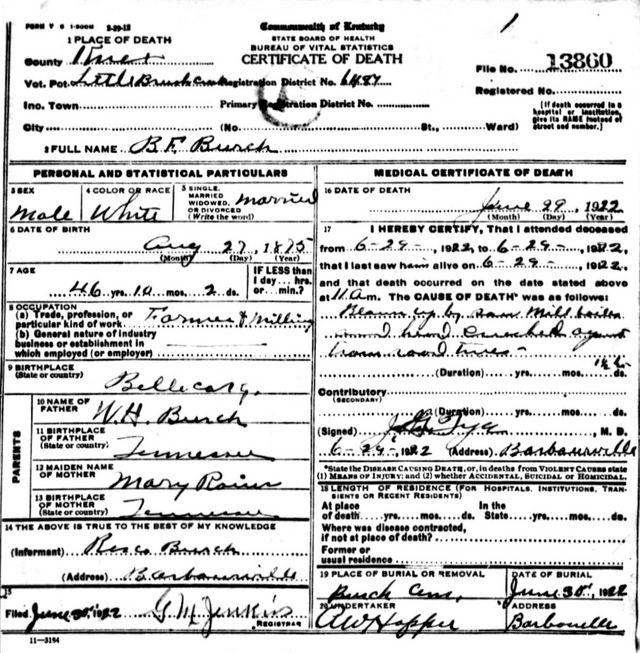 FORM V S 1-500M 2-29-12
Commonwealth of Kentucky
STATE BOARD OF HEALTH
BUREAU OF VITAL STATISTICS
CERTIFICATE OF DEATH
1
1 PLACE OF DEATH
County Knox
File No. 13860
Vot. Pct. Little Brush Creek Registration District No. 6487
Registered No.
Inc. Town Primary Registration District No.
City (No. St., Ward)
[If death occurred in a hospital or institution, give its NAME instead of street and number.]
2 FULL NAME B.F. Burch
PERSONAL AND STATISTICAL PARTICULARS
3 SEX
Male
4 COLOR OR RACE
White
5 SINGLE, MARRIED WIDOWED, OR DIVORCED (Write the word)
Married
6 DATE OF BIRTH
Aug 27, 1875
(Month) (Day) (Year)
7 AGE
46 yrs. 10 mos. 2 ds.
IF LESS than 1 day... hrs. or... min.?
8 OCCUPATION
(a) Trade, profession, or particular kind of work Farmer & Milling
(b) General nature of industry business or establishment in which employed (or employer)
9 BIRTHPLACE
(State or country)
Bell
PARENTS
10 NAME OF FATHER
W.H. Burch
11 BIRTHPLACE OF FATHER
(State or country)
Tennessee
12 MAIDEN NAME OF MOTHER
Mary
13 BIRTHPLACE OF MOTHER
(State or country)
Tennessee
14 THE ABOVE IS TRUE TO THE BEST OF MY KNOWLEDGE
(Informant) Burch
(Address) Barbourville
15
Filed June 30, 1922 G M Jenkins
REGISTRAR
11-3184
MEDICAL CERTIFICATE OF DEATH
16 DATE OF DEATH
June 29, 1922
(Month) (Day) (Year)
17 I HEREBY CERTIFY, That I attended deceased
from 6-29-, 1922, to 6-29-, 1922,
that I last saw him alive on 6-29-, 1922,
and that death occurred on the date stated above
at 11 am. The CAUSE OF DEATH* was as follows:
Blown up by Saw Mill boiler
and head crushed against
(Duration) yrs. mos. ds.
Contributory
(SECONDARY)
(Duration) yrs. mos. ds.
(Signed) , M. D.
6-29-, 1922 (Address) Barbourville
*State the DISEASE CAUSING DEATH, or, in deaths from VIOLENT CAUSES state (1) MEANS OF INJURY; and (2) whether ACCIDENTAL, SUICIDAL or HOMICIDAL.
18 LENGTH OF RESIDENCE (FOR HOSPITALS, INSTITUTIONS, TRANSIENTS OR RECENT RESIDENTS)
At place of death yrs. mos. ds. In the State yrs. mos. ds.
Where was disease contracted, if not at place of death?
Former or usual residence
19 PLACE OF BURIAL OR REMOVAL
Burch Cem.
DATE OF BURIAL
June 30, 1922
20 UNDERTAKER
AW Hopper
ADDRESS